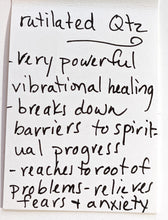 rutilated Qtz
-very powerful
vibrational healing
- breaks down
barriers to spirit-
ual progress
- reaches to root of
problems - relieves
fears & anxiety